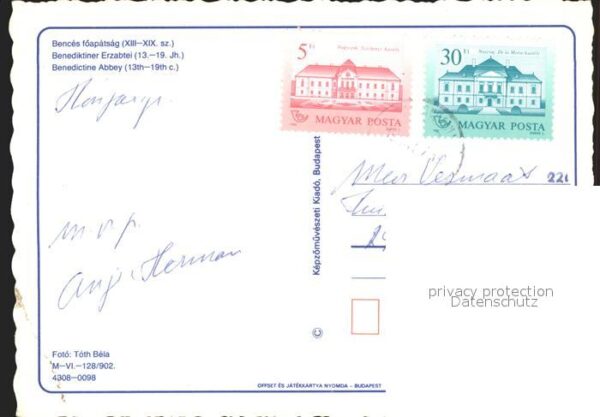 Bencés főapátság (XIII–XIX. sz.)
Benediktiner Erzabtei (13.–19. Jh.)
Benedictine Abbey (13th–19th c.)
5 Ft
MAGYAR POSTA
30 Ft
MAGYAR POSTA
m.v.p.
Herman
Képzőművészeti Kiadó, Budapest
©
221
privacy protection
Datenschutz
Fotó: Tóth Béla
M–VI.–128/902.
4308–0098
OFFSET ÉS JÁTÉKKÁRTYA NYOMDA – BUDAPEST